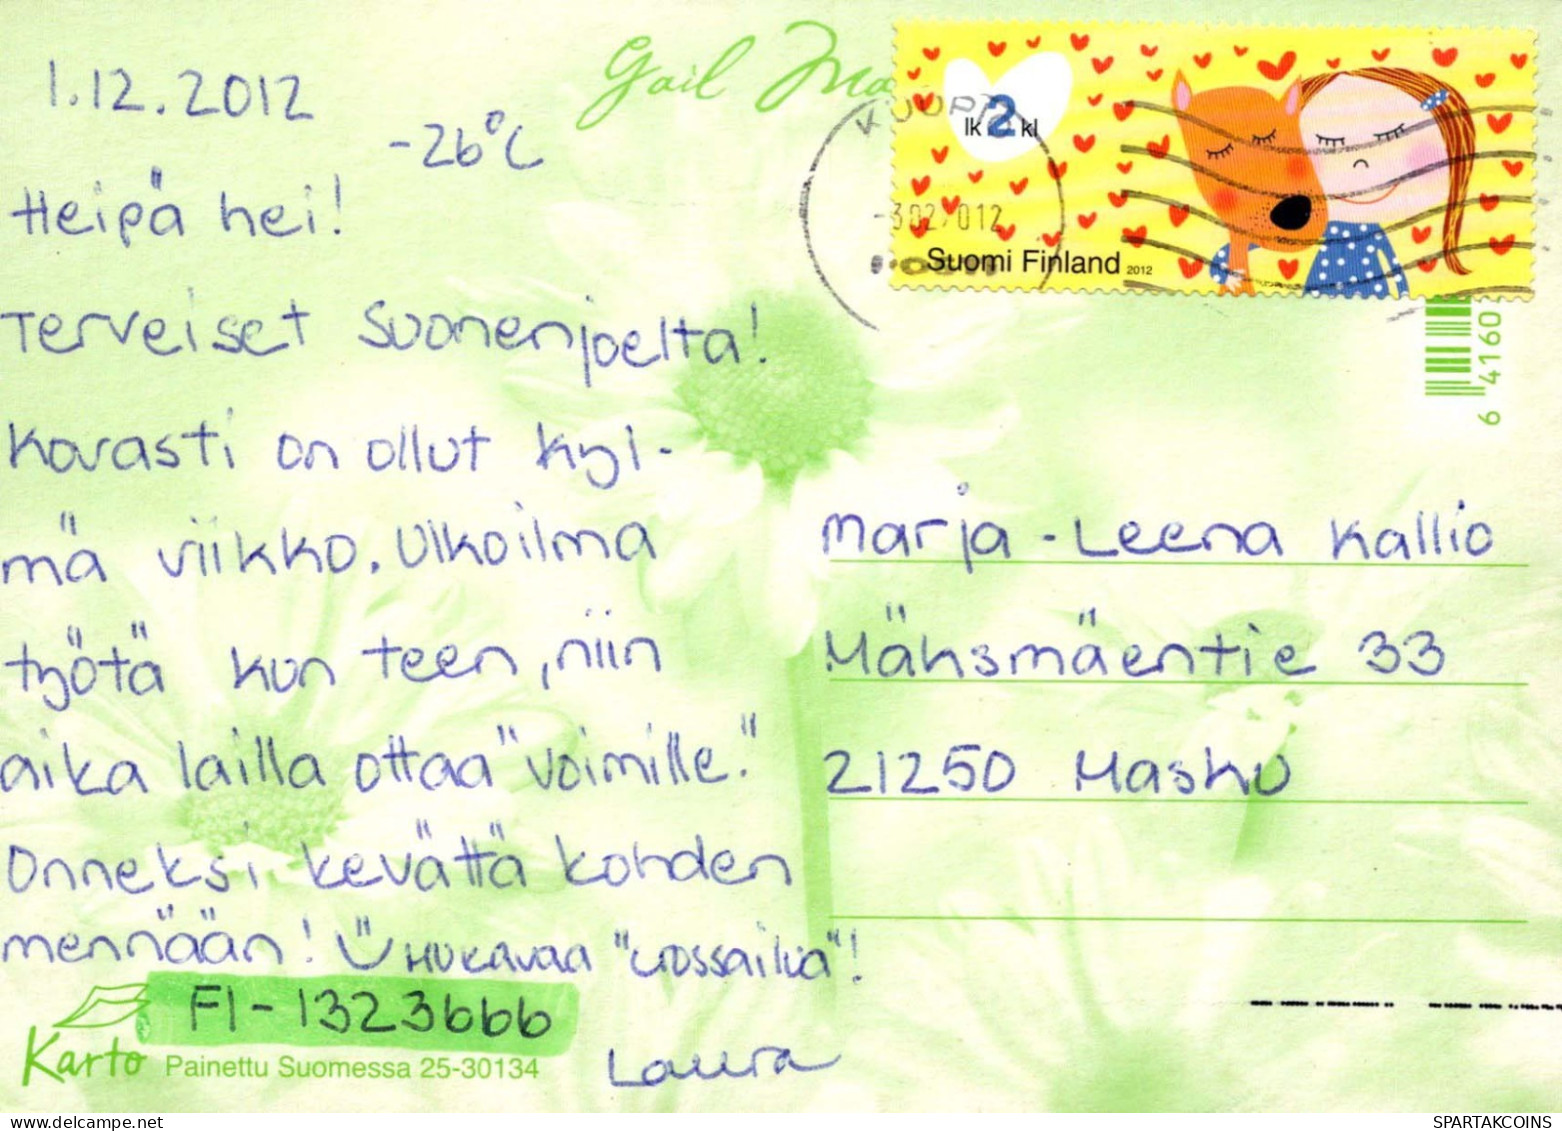 1.12.2012
-26°C
Heipä hei!
Terveiset Suonenjoelta!
Kovasti on ollut kyl-
mä viikko. Ulkoilma
työtä kun teen, niin
aika lailla ottaa "voimille."
Onneksi kevättä kohden
mennään! Hukavaa "crossailua"!
FI-1323666
Laura
Karto Painettu Suomessa 25-30134
Gail
KUOPIO
-3.02.2012
lk 2 kl
Suomi Finland 2012
6 4160
Marja-Leena Kallio
Mäksmäentie 33
21250 Masku
SPARTAKCOINS